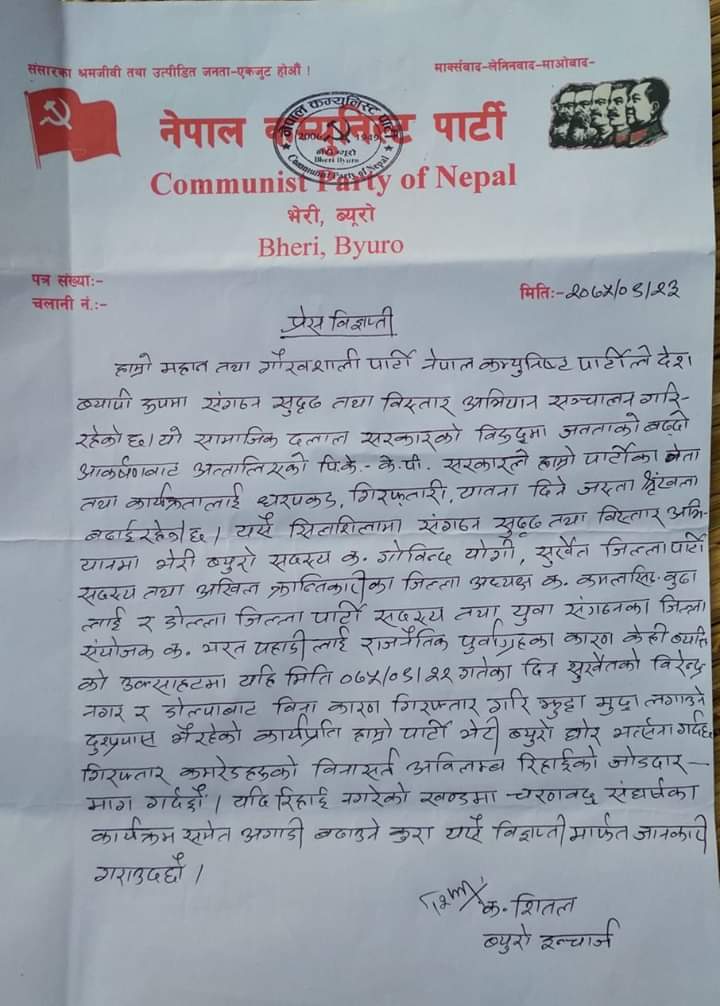 संसारका श्रमजीवी तथा उत्पीडित जनता-एकजुट होऔं !
मार्क्सवाद-लेनिनवाद-माओबाद-
नेपाल कम्युनिस्ट पार्टी
नेपाल कम्युनिस्ट पार्टी
2006 1949
भेरी ब्यूरो
Bheri Byuro
Communist Party of Nepal
Communist Party of Nepal
भेरी, ब्यूरो
Bheri, Byuro
पत्र संख्याः-
चलानी नं.:-
मितिः-२०७५/०६/२३
प्रेस विज्ञप्ती
हाम्रो महान तथा गौरवशाली पार्टी नेपाल कम्युनिष्ट पार्टीले देश
ब्यापी रुपमा संगठन सुदृढ तथा विस्तार अभियान सञ्चालन गरि-
रहेको छ। यो सामाजिक दलाल सरकारको विरुद्दमा जनताको बढ्दो
आकर्षणबाट अत्तालिएको पि.के.- के.पी. सरकारले हाम्रो पार्टीका नेता
तथा कार्यकर्तालाई धरपकड, गिरफ्तारी, यातना दिने जस्ता श्रृंखला
बढाई रहेको छ। यसै सिलशिलामा संगठन सुदृढ तथा विस्तार अभि-
यानमा भेरी ब्युरो सदस्य क. गोविन्द योगी, सुर्खेत जिल्ला पार्टी
सदस्य तथा अखिल क्रान्तिकारीका जिल्ला अध्यक्ष क. कमलसिं बुढा
लाई र डोल्पा जिल्ला पार्टी सदस्य तथा युवा संगठनका जिल्ला
संयोजक क. भरत पहाडीलाई राजनैतिक पुर्वाग्रहका कारण केही ब्यक्ति
को उक्साहटमा यहि मिति ०७५/०६/२२ गतेका दिन सुर्खेतको विरेन्द्र
नगर र डोल्पाबाट विना कारण गिरफ्तार गरि झुट्टा मुद्दा लगाउने
दुश्प्रयास भैरहेको कार्यप्रति हाम्रो पार्टी भेरी ब्युरो घोर भर्त्सना गर्दछ
गिरफ्तार कमरेडहरुको विनासर्त अविलम्ब रिहाईको जोडदार-
माग गर्दछौं। यदि रिहाई नगरेको खण्डमा चरणवद्द संघर्षका
कार्यक्रम समेत अगाडी बढाउने कुरा यसै विज्ञप्ती मार्फत जानकारी
गराउदछौं।
क. शितल
ब्युरो इन्चार्ज